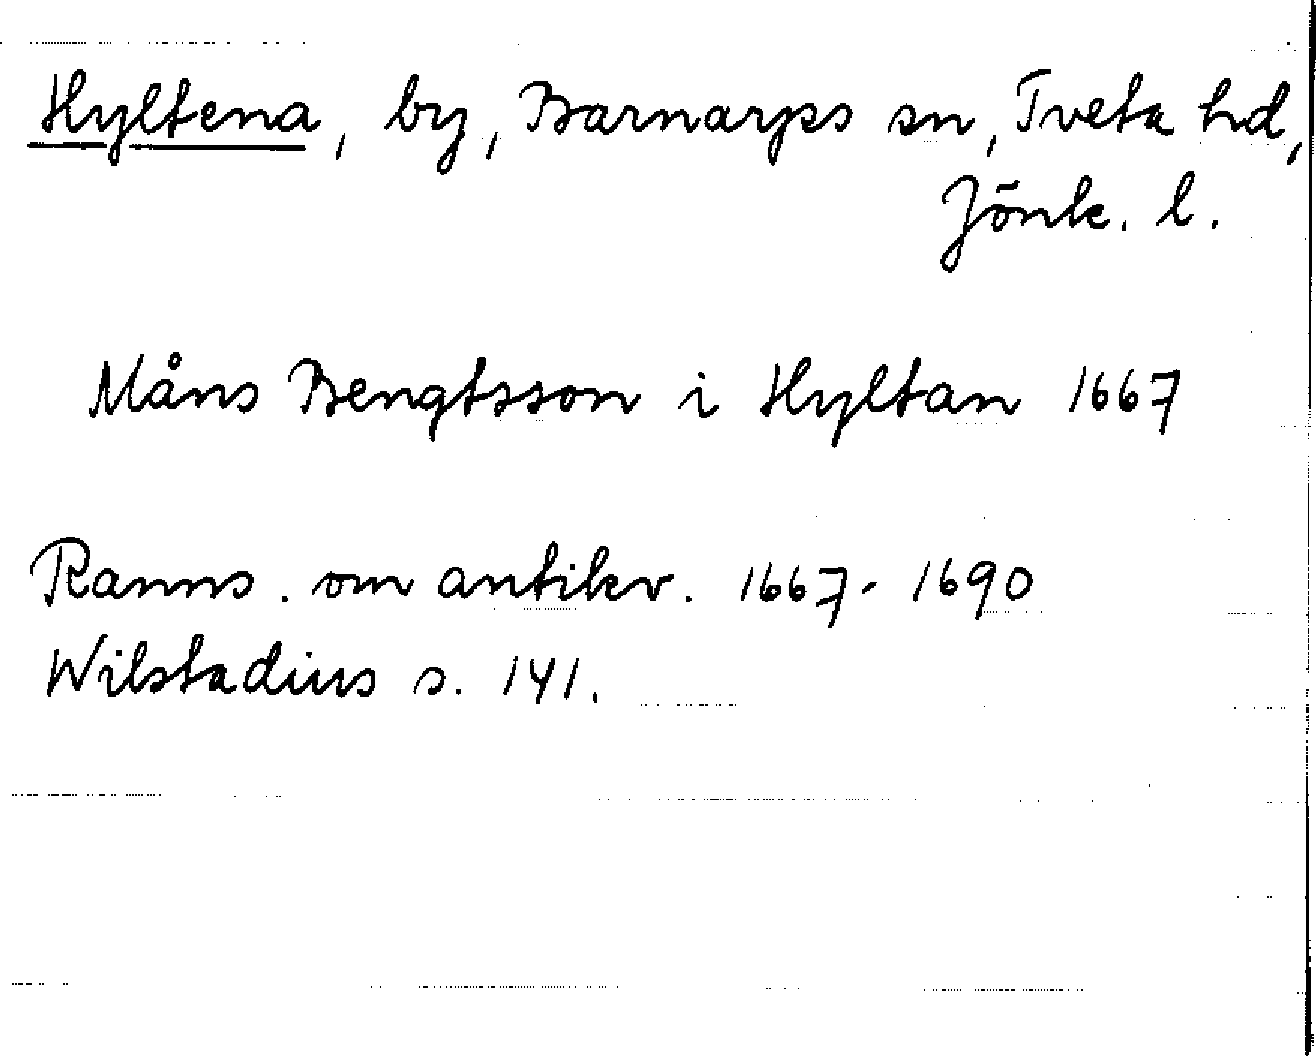 Hyltena, by, Barnarps sn, Tveta hd,
Jönk. l.
Måns Bengtsson i Hyltan 1667
Ranns. om antikv. 1667-1690
Wilstadius s. 141.